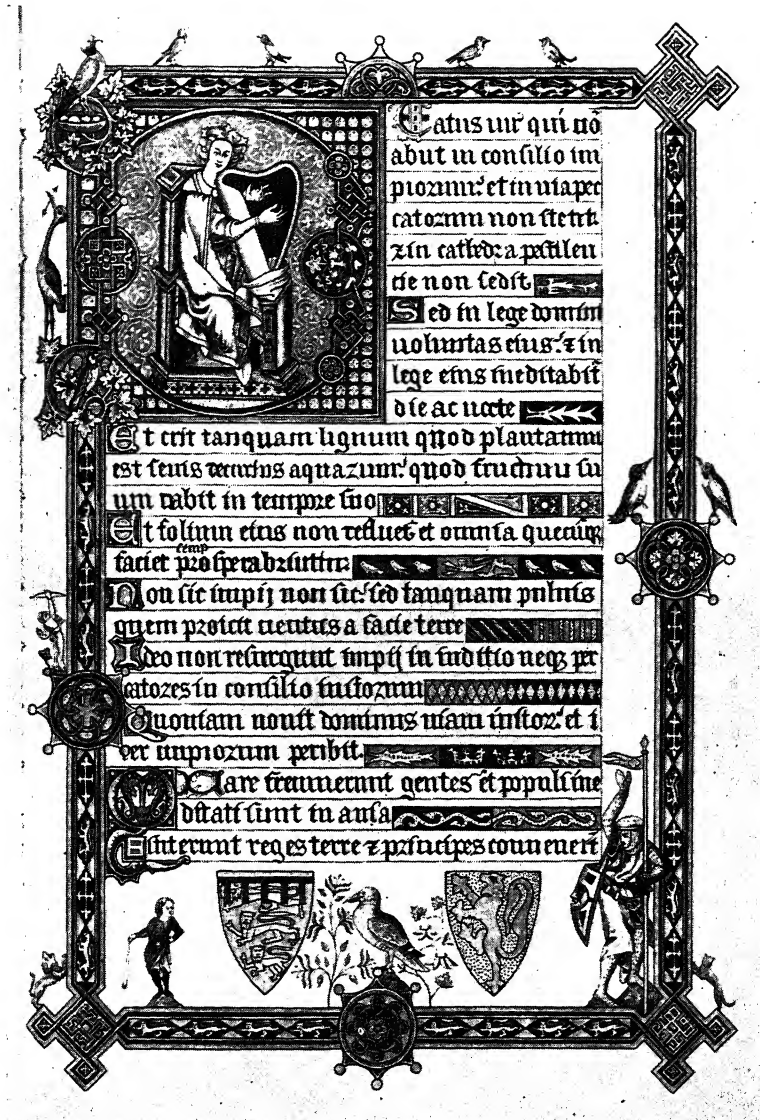 Eatus uir qui nō
abiit in consilio im
piorum: et in uia pec
catorum non stetit
⁊ in cathedra pestilen
cie non sedit.
Sed in lege domini
uoluntas eius: ⁊ in
lege eius meditabit̄
die ac nocte
Et erit tanquam lignum quod plantatum
est secus decursus aquarum: quod fructum su
um dabit in tempore suo
Et folium eius non defluet et omnia quecūqꝫ
faciet semp prosperabuntur:
Non sic impij non sic: sed tanquam puluis
quem proicit uentus a facie terre
Ideo non resurgunt impij in iuditio neqꝫ pec
catores in consilio iustorum
Quoniam nouit dominus uiam iustoꝝ: et i
ter impiorum peribit.
Quare fremuerunt gentes et populi me
ditati sunt in ania
Astiterunt reges terre ⁊ principes conuener̄t